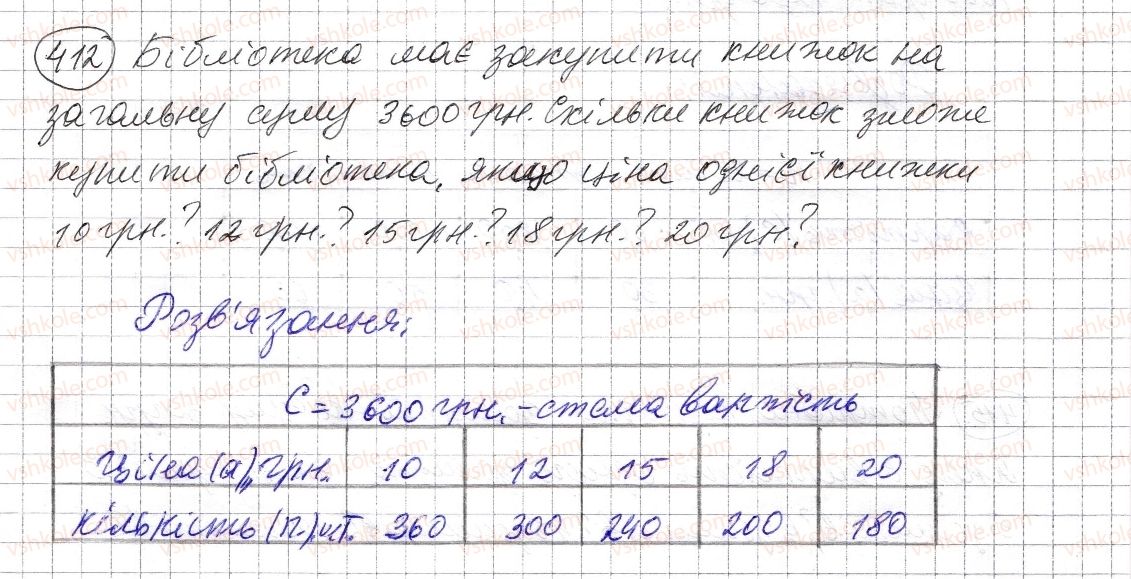 412 Бібліотека має закупити книжок на
загальну суму 3600 грн. Скільки книжок зможе
купити бібліотека, якщо ціна однієї книжки
10 грн.? 12 грн.? 15 грн.? 18 грн.? 20 грн.?
Розв'язання:
C = 3600 грн. - стала вартість
Ціна (a), грн. 10 12 15 18 20
Кількість (n.) шт. 360 300 240 200 180